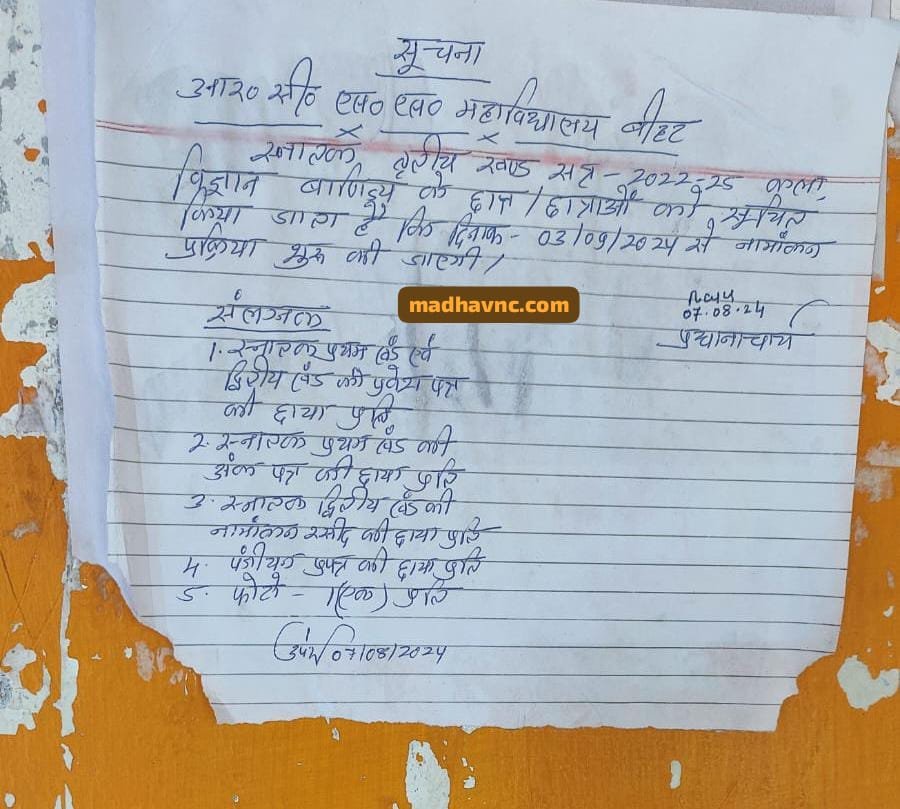 सूचना
आर० सी० एस० एस० महाविद्यालय बीहट
स्नातक तृतीय खण्ड सत्र - 2022-25 कला,
विज्ञान वाणिज्य के छात्र / छात्राओं को सूचित
किया जाता है कि दिनांक - 03/09/2024 से नामांकन
प्रक्रिया शुरू की जाएगी /
madhavnc.com
07.08.24
प्रधानाचार्य
संलग्नक
1. स्नातक प्रथम खंड एवं
द्वितीय खंड की प्रवेश पत्र
की छाया प्रति
2. स्नातक प्रथम खंड की
अंक पत्र की छाया प्रति
3. स्नातक द्वितीय खंड की
नामांकन रसीद की छाया प्रति
4. पंजीयन प्रपत्र की छाया प्रति
5. फोटो - 1(एक) प्रति
07/08/2024